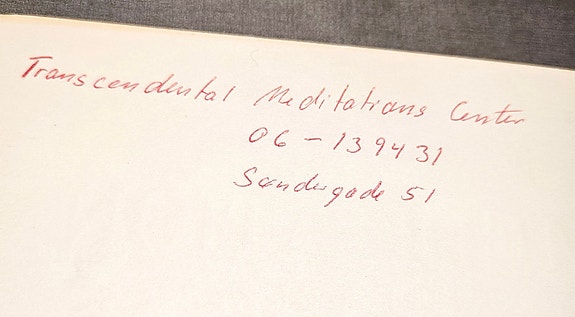 Transcendental Meditations Center
06-139431
Søndergade 51